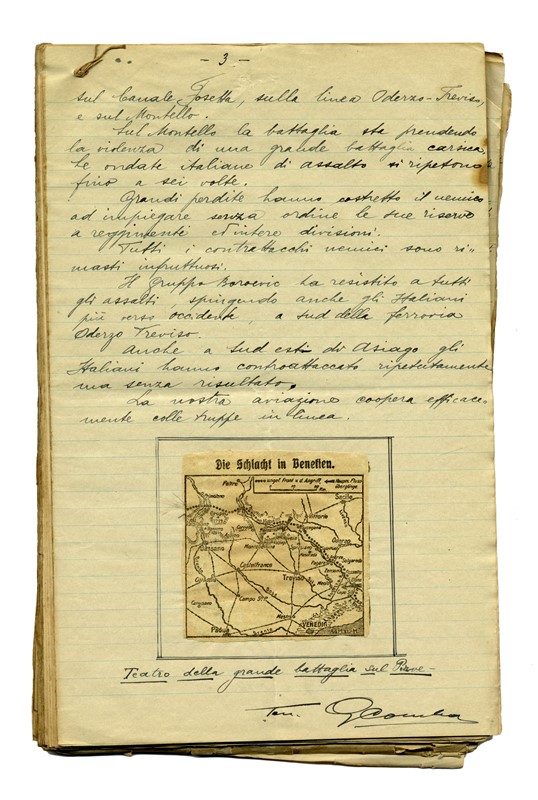 - 3 -
sul Canale Fosetta, sulla linea Oderzo-Treviso,
e sul Montello.
Sul Montello la battaglia sta prendendo
la violenza di una grande battaglia carsica,
le ondate italiane di assalto si ripetono
fino a sei volte.
Grandi perdite hanno costretto il nemico
ad impiegare senza ordine le sue riserve
a reggimenti ed intere divisioni.
Tutti i contrattacchi nemici sono ri=
masti infruttuosi.
Il gruppo Boroevic ha resistito a tutti
gli assalti spingendo anche gli Italiani
più verso occidente, a sud della ferrovia
Oderzo Treviso.
Anche a sud est di Asiago gli
Italiani hanno controattaccato ripetutamente
ma senza risultato.
La nostra aviazione coopera efficace-
mente colle truppe in linea.
Die Schlacht in Venetien.
Feltre
Sacile
Bassano
Castelfranco
Treviso
Campo
Mestre
Padua
Brenta
VENEDIG
Teatro della grande battaglia sul Piave-
Ten.